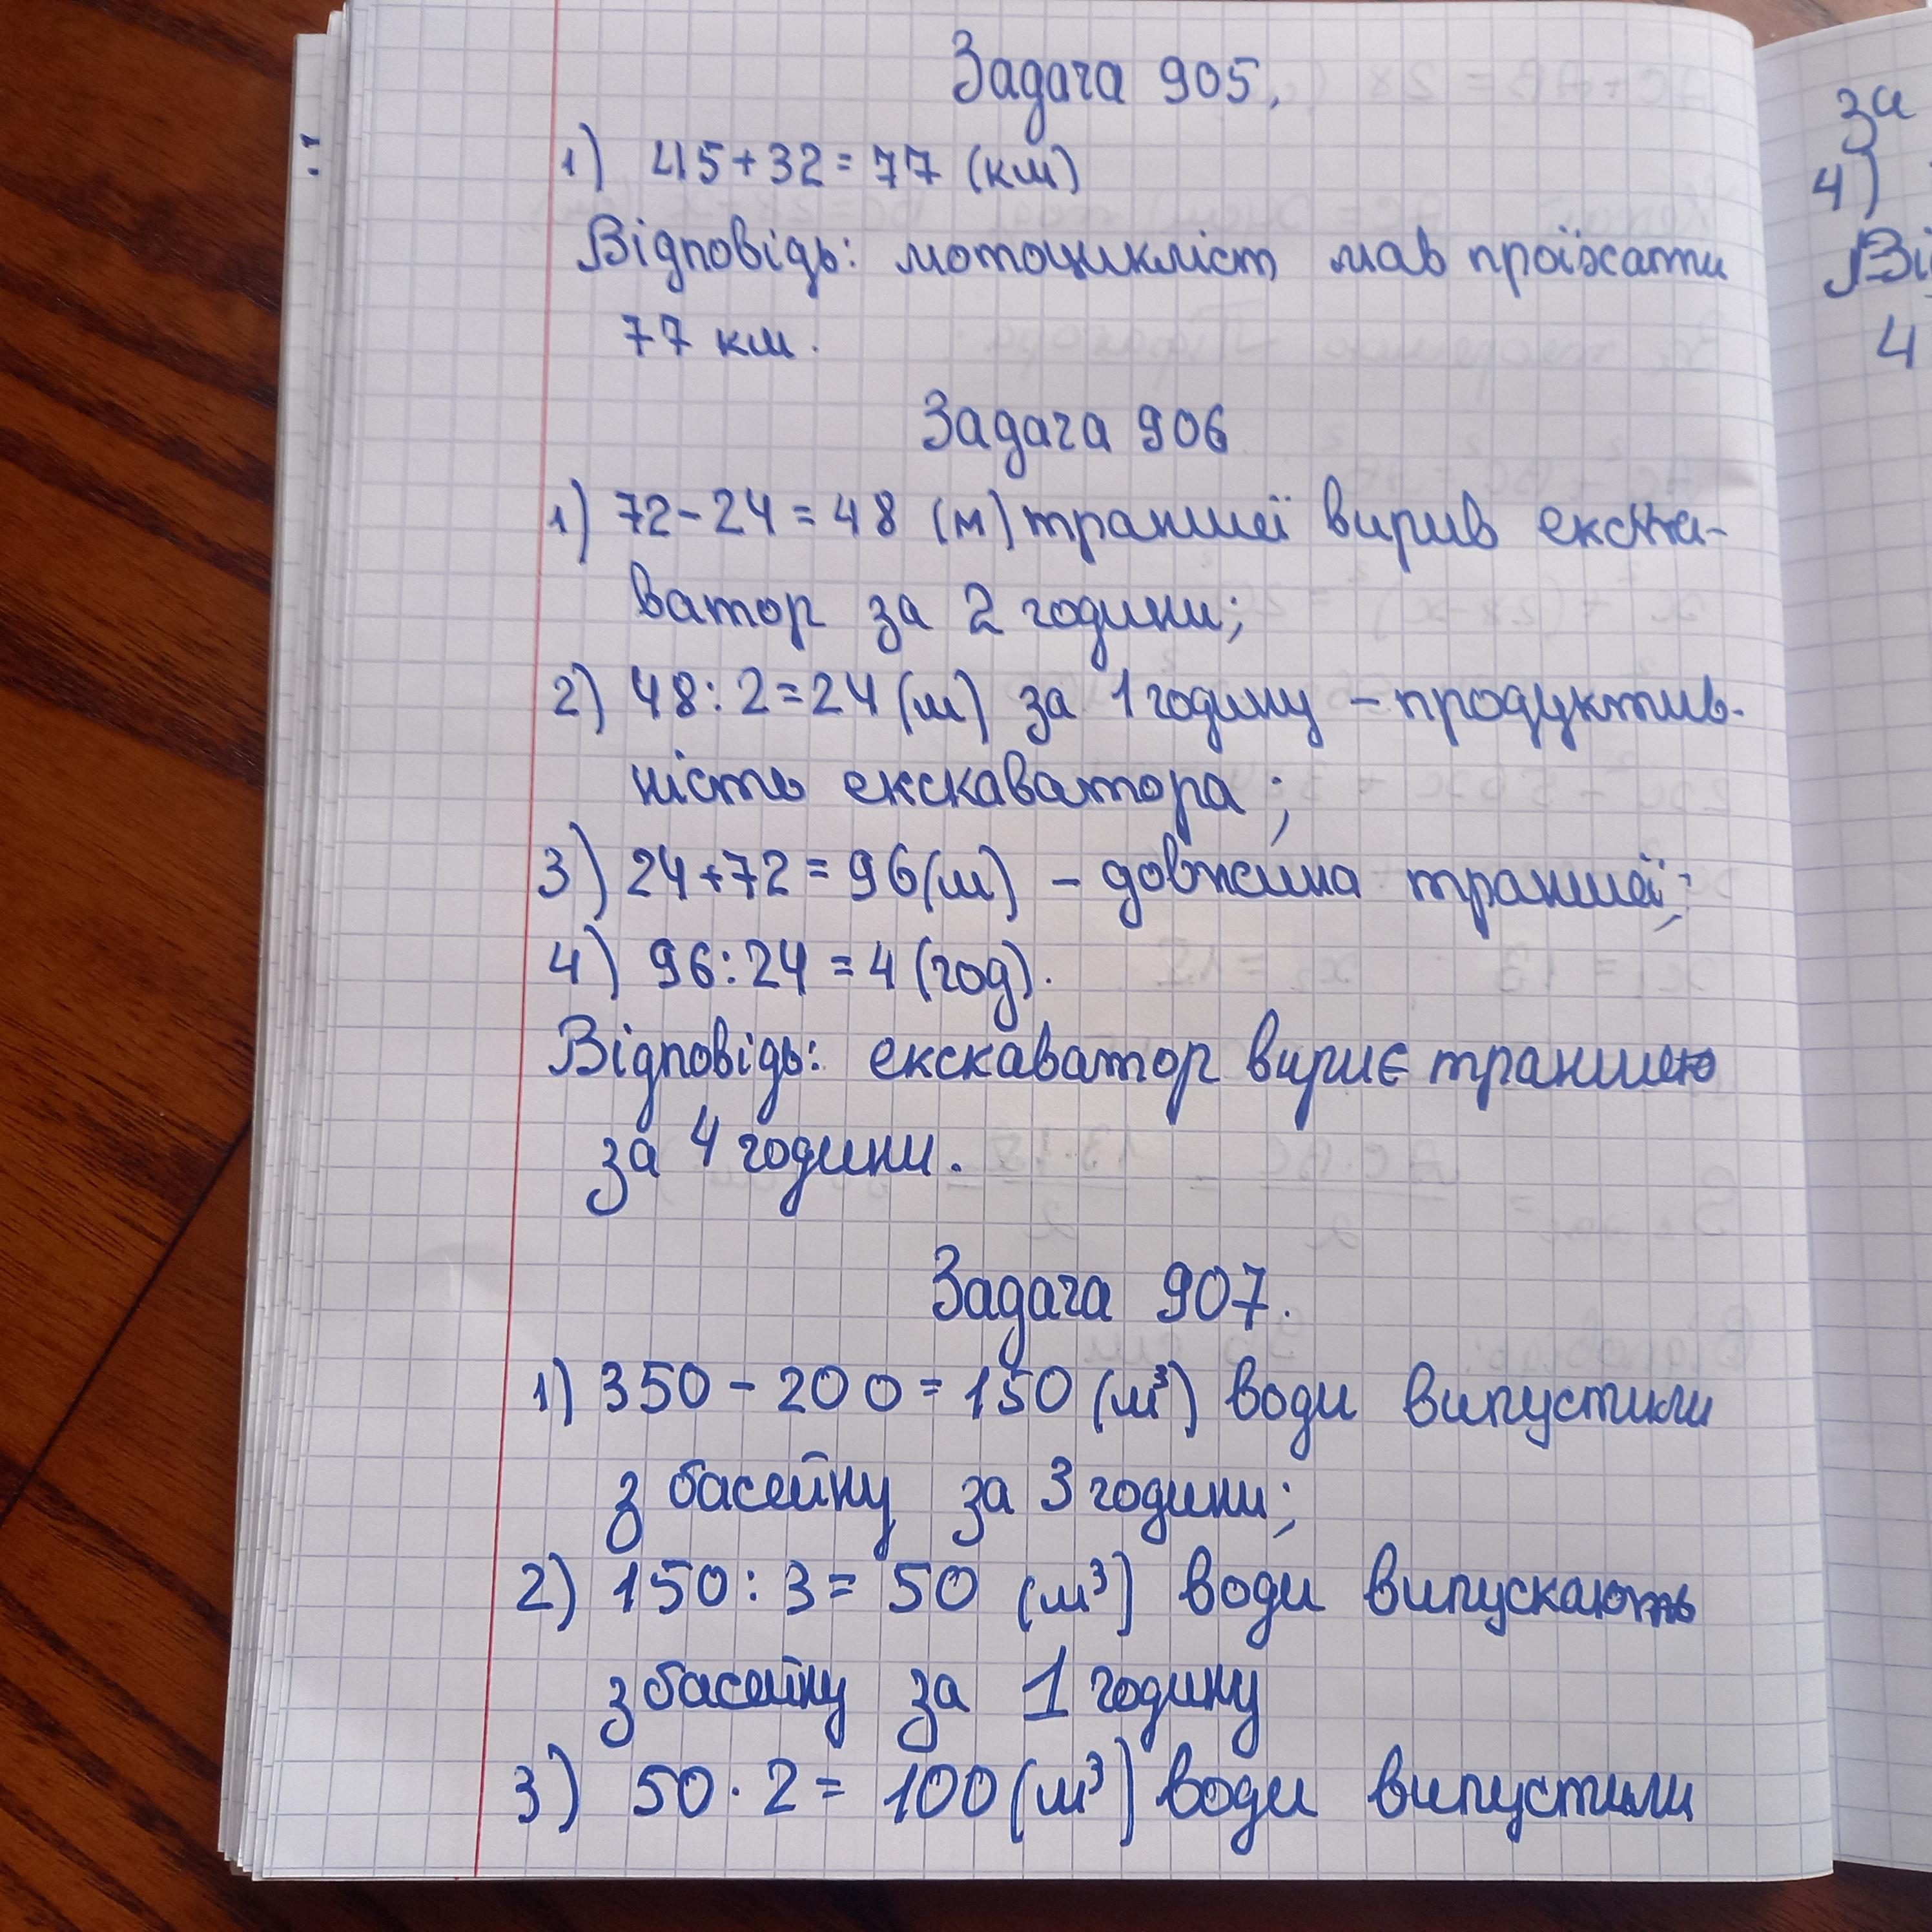 Задача 905.
1) 45+32=77 (км)
Відповідь: мотоцикліст мав проїхати
77 км.
Задача 906
1) 72-24=48 (м) траншеї вирив екска-
ватор за 2 години;
2) 48:2=24 (м) за 1 годину - продуктив-
ність екскаватора;
3) 24+72=96 (м) - довжина траншеї;
4) 96:24=4 (год).
Відповідь: екскаватор вириє траншею
за 4 години.
Задача 907.
1) 350-200=150 (м³) води випустили
з басейну за 3 години;
2) 150:3=50 (м³) води випускають
з басейну за 1 годину
3) 50·2=100 (м³) води випустили
за
4)
Ві
4